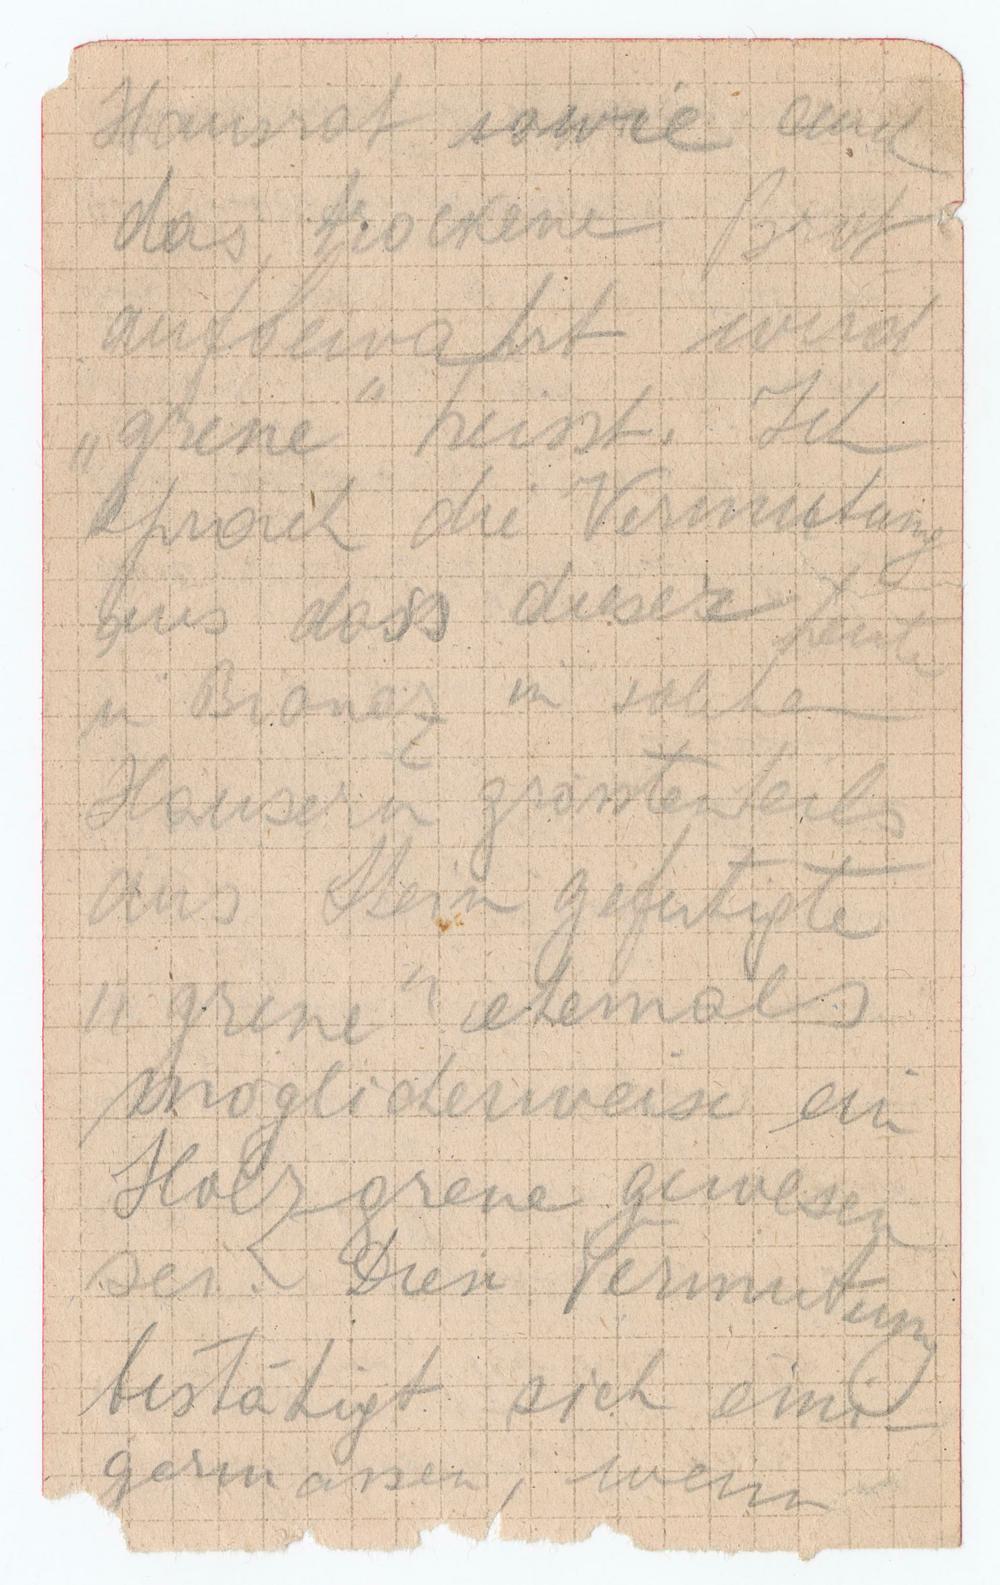 Hausrat sowie auch
das trockene Brot
aufbewahrt wird
„grene" heisst. Ich
sprach die Vermutung
aus dass dieser heute
in Bionaz in solchen
Häusern grösstenteils
aus Stein gefertigte
"grene" ehemals
möglicherweise ein
Holzgrene gewesen
sei. Diese Vermutung
bestätigt sich eini-
germassen, wenn